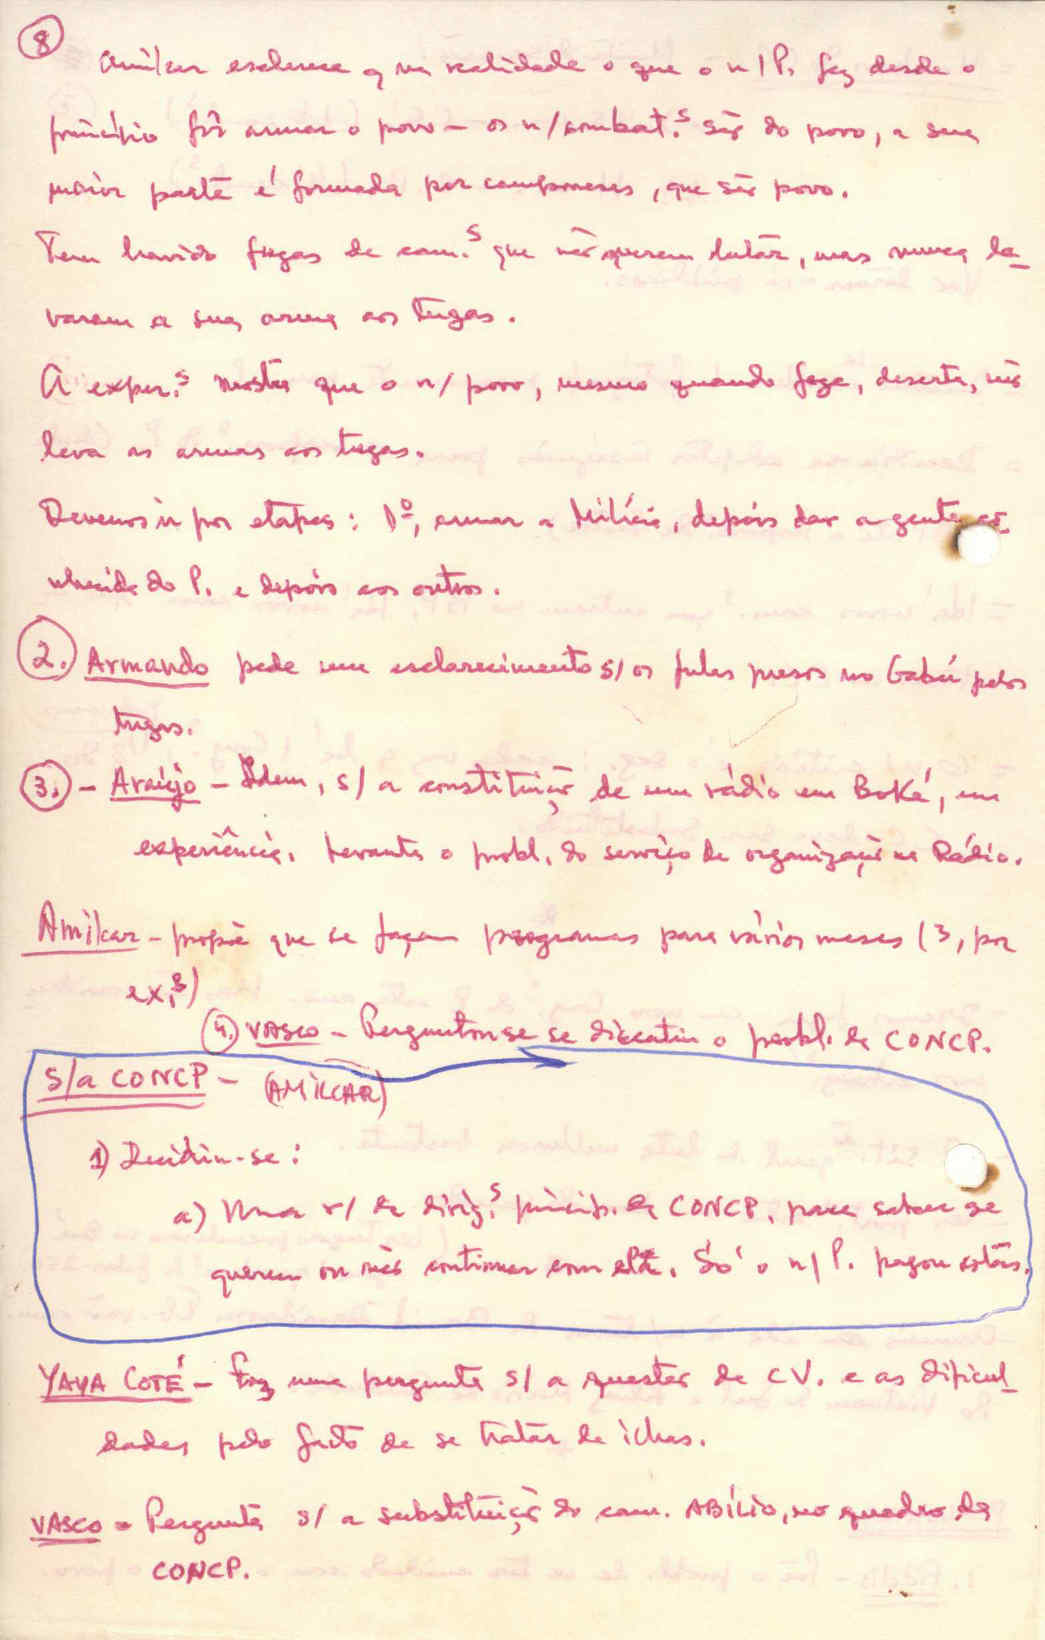 8
Amílcar esclarece q na realidade o que o n/P. fez desde o
princípio foi armar o povo – os n/combat.s são do povo, a sua
maior parte é formada por camponeses, que são povo.
Tem havido fugas de cam.s que não querem lutar, mas nunca le-
varam a sua arma aos tugas.
A exper.a mostra que o n/ povo, mesmo quando foge, deserta, não
leva as armas aos tugas.
Devemos ir por etapas: 1º, armar a Milícia, depois dar a gente co-
nhecida do P. e depois aos outros.
2. Armando pede um esclarecimento s/ os fulas presos no Gabú pelos
tugas.
3. – Araújo – Idem, s/ a constituição de um rádio em Boké, em
experiência. Levanta o probl. do serviço de organização na Rádio.
Amílcar – propõe que se façam programas para vários meses (3, por
ex.)
4. VASCO – Perguntou se se discutiu o probl. da CONCP.
S/a CONCP – (AMILCAR)
1) Decidiu-se:
a) Uma r/ de dirig.s princip. da CONCP, para saber se
querem ou não continuar com ela. Só o n/ P. pagou cotas.
YAYA COTÉ – Faz uma pergunta s/ a questão de CV. e as dificul-
dades pelo facto de se tratar de ilhas.
VASCO – Pergunta s/ a substituição do cam. ABÍLIO, no quadro da
CONCP.